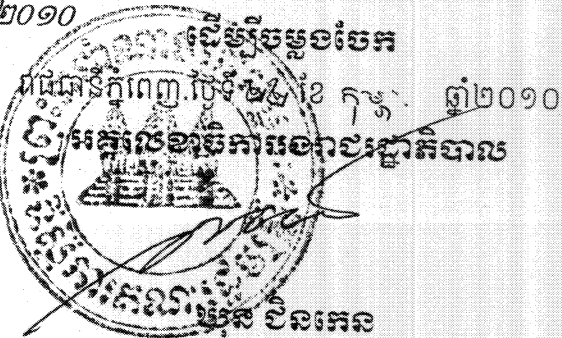 ២០១០
ដើម្បីចម្លងចែក
រាជធានីភ្នំពេញ.ថ្ងៃទី ២២ ខែ កុម្ភៈ ឆ្នាំ២០១០
អគ្គលេខាធិការរងរាជរដ្ឋាភិបាល
ឃុន ជិនកេន